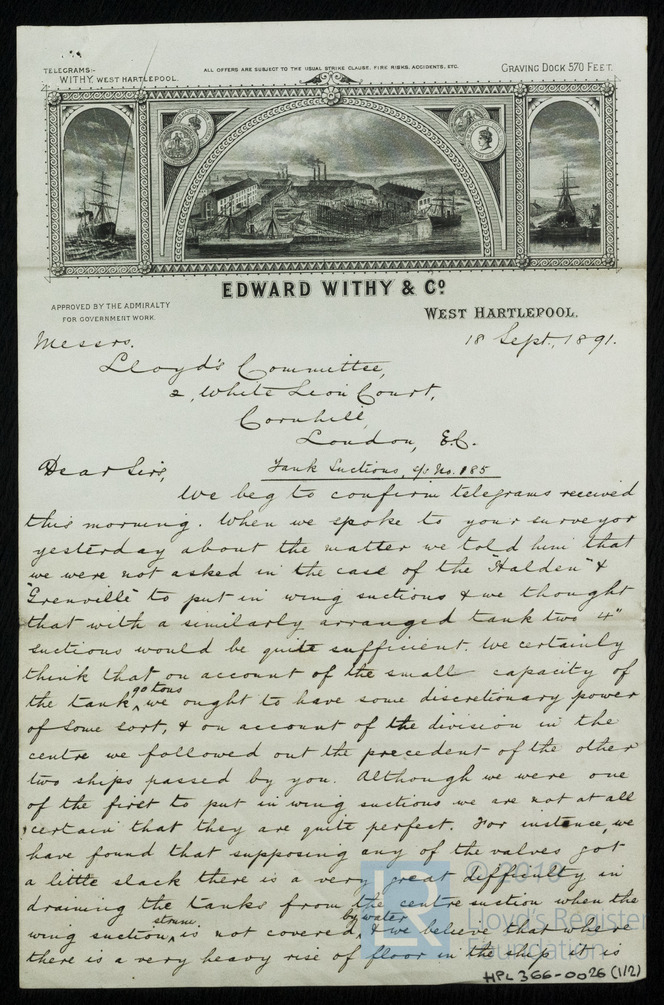 TELEGRAMS:-
WITHY, WEST HARTLEPOOL.
ALL OFFERS ARE SUBJECT TO THE USUAL STRIKE CLAUSE, FIRE RISKS, ACCIDENTS, ETC.
GRAVING DOCK 570 FEET.
EDWARD WITHY & Co
APPROVED BY THE ADMIRALTY
FOR GOVERNMENT WORK.
WEST HARTLEPOOL.
18 Sept., 1891.
Messrs.
Lloyd's Committee,
2, White Lion Court,
Cornhill,
London, E.C.
Dear Sirs,
Tank Suctions, s/s No. 185
We beg to confirm telegrams received
this morning. When we spoke to your surveyor
yesterday about the matter we told him that
we were not asked in the case of the "Halden" &
"Grenville" to put in wing suctions & we thought
that with a similarly arranged tank two 4"
suctions would be quite sufficient. We certainly
think that on account of the small capacity of
the tank, 90 tons we ought to have some discretionary power
of some sort, & on account of the division in the
centre we followed out the precedent of the other
two ships passed by you. Although we were one
of the first to put in wing suctions we are not at all
certain that they are quite perfect. For instance, we
have found that supposing any of the valves got
a little slack there is a very great difficulty in
draining the tanks from the centre suction when the
wing suction strum is not covered by water, & we believe that where
there is a very heavy rise of floor in the ship it is
© 2019
LR
Lloyd's Register
Foundation
HPL 366-0026 (1/2)